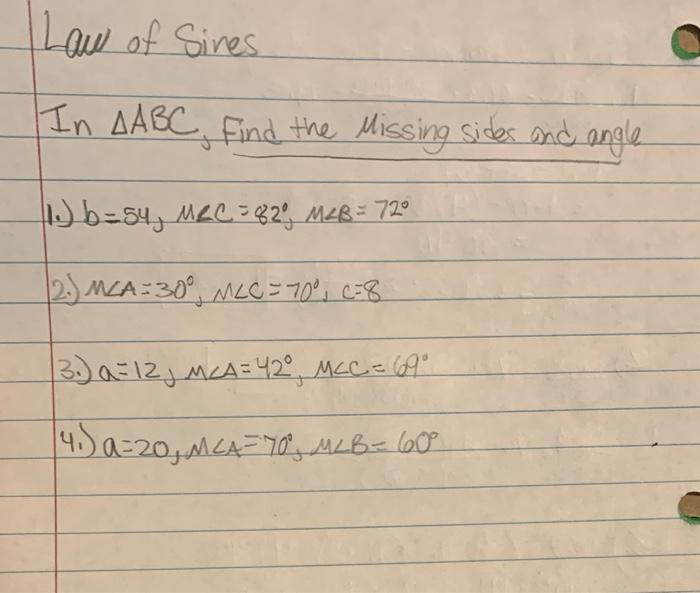 Law of Sines
In △ABC, Find the Missing sides and angle
1.) b=54, M∠C=82°, M∠B=72°
2.) M∠A=30°, M∠C=70°, c=8
3.) a=12, M∠A=42°, M∠C=69°
4.) a=20, M∠A=70°, M∠B=60°